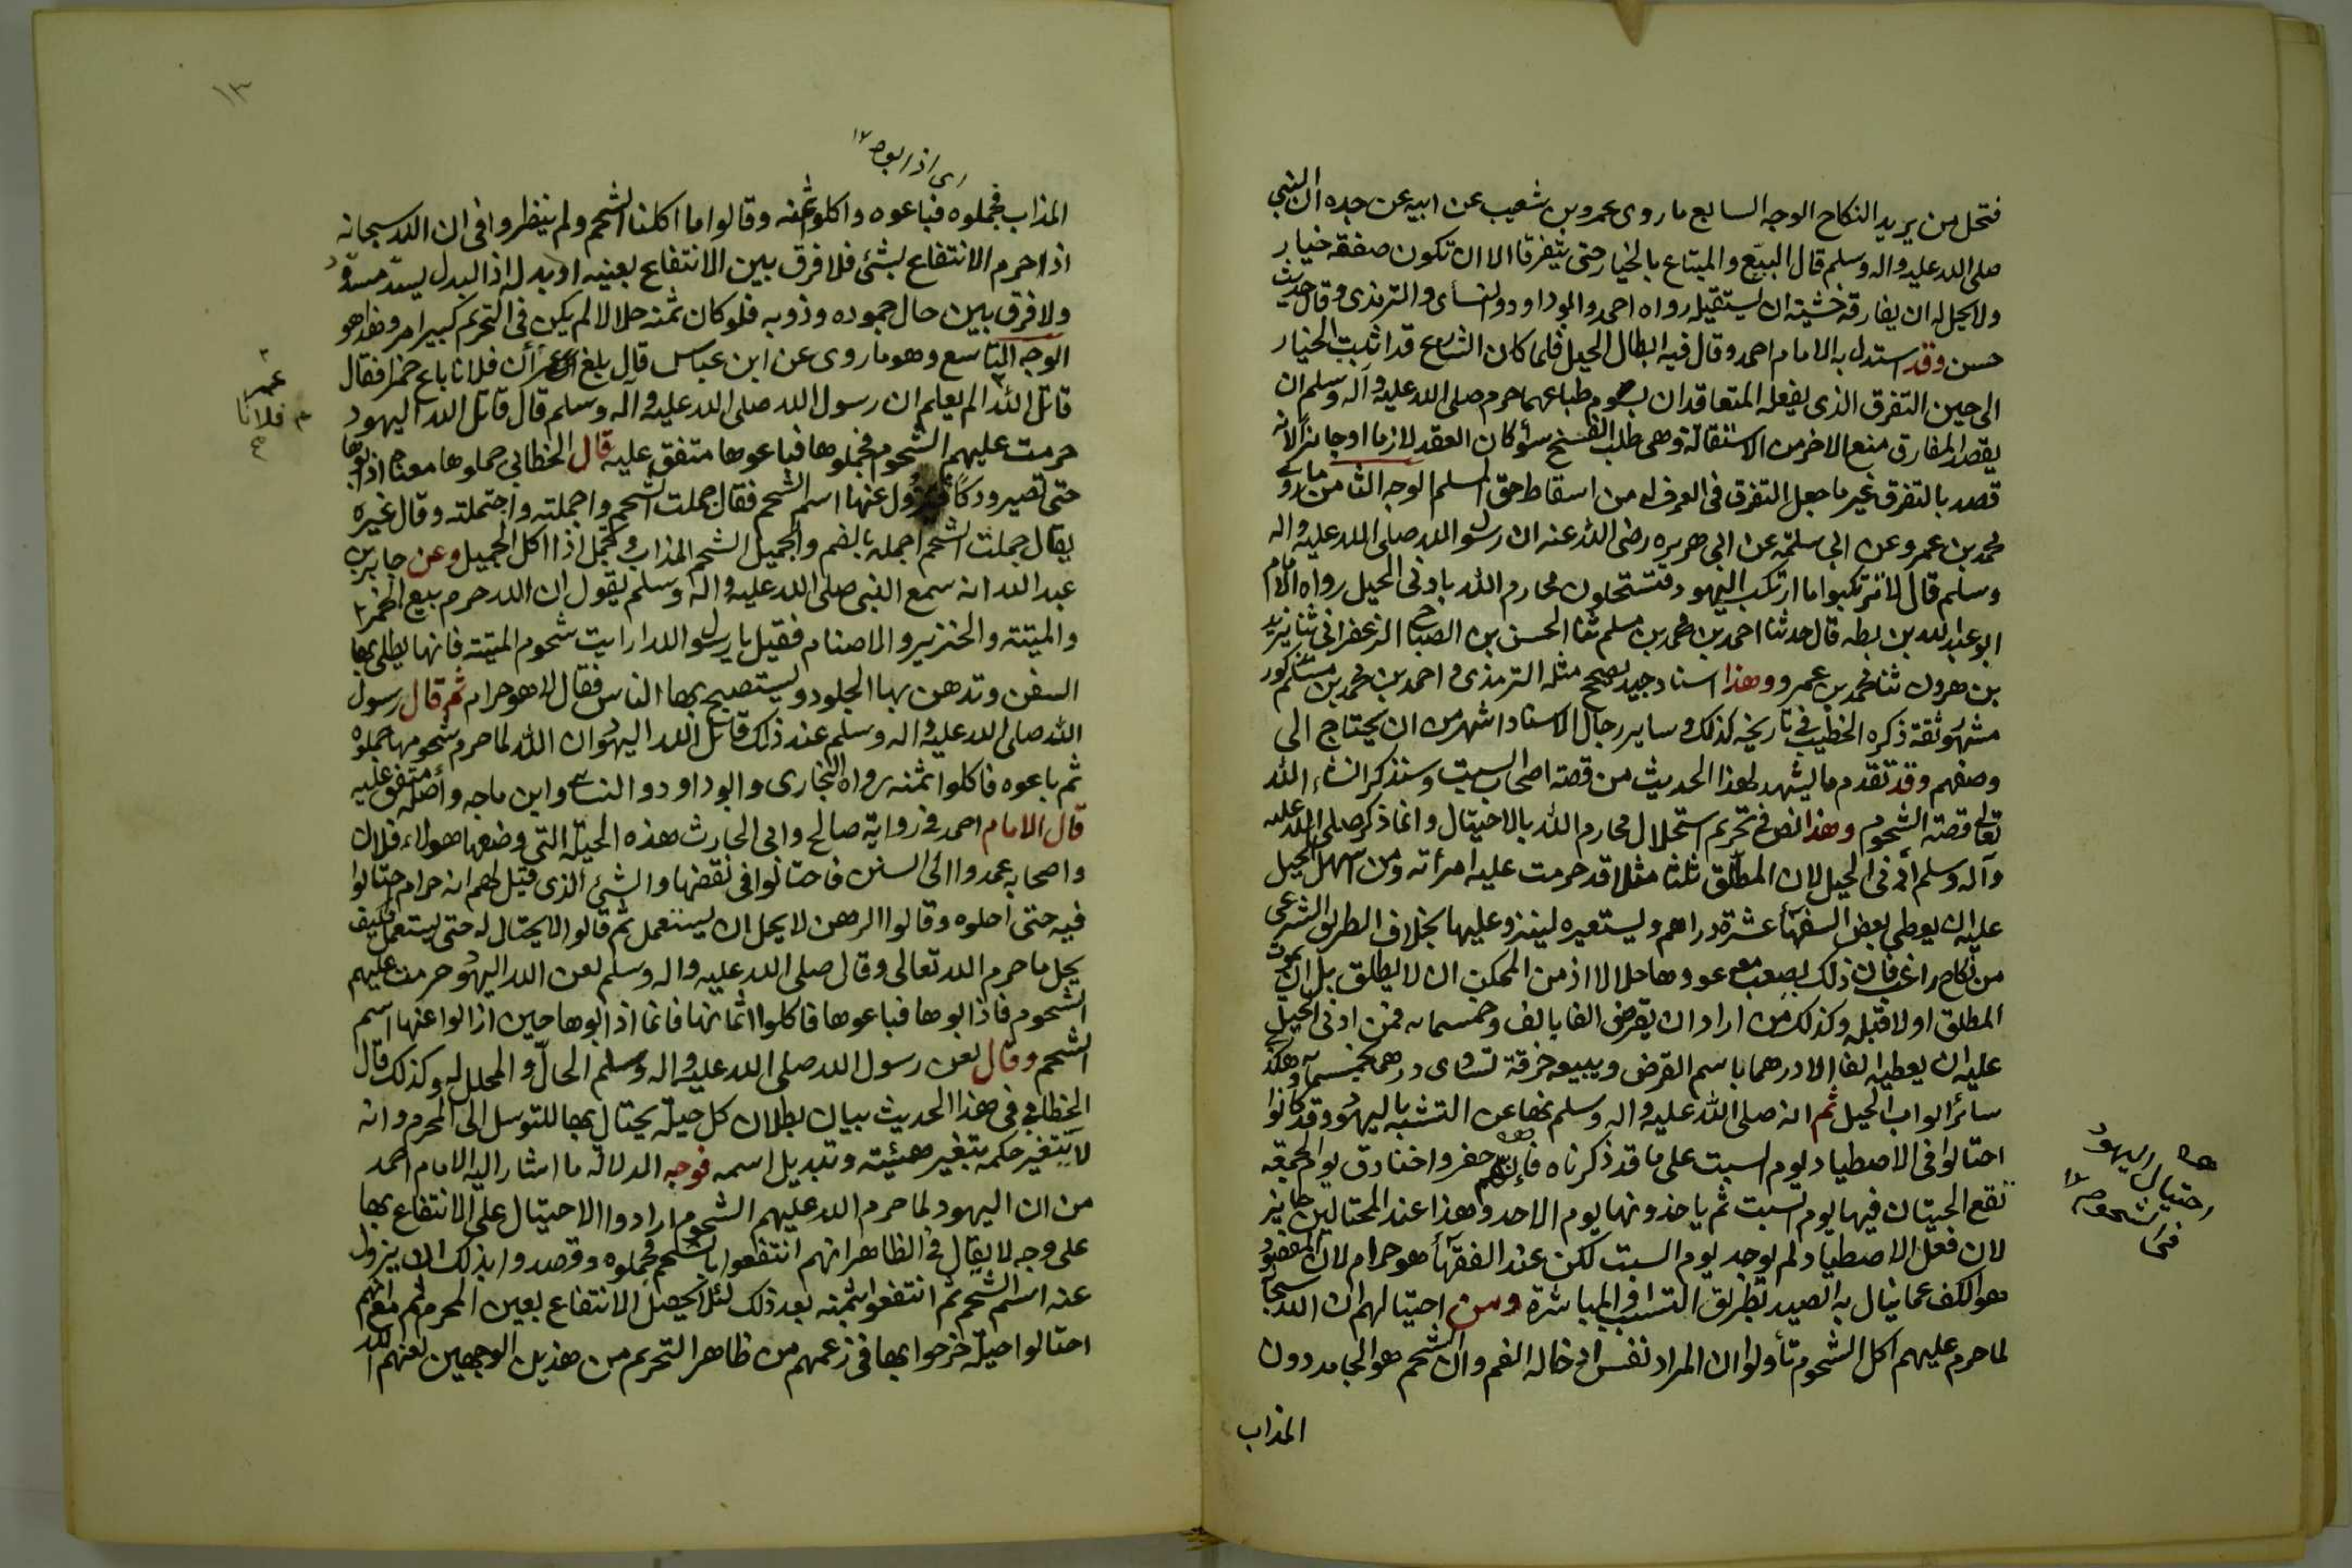 فتحل لمن يريد النكاح الوجه السابع ما روى عمرو بن شعيب عن ابيه عن جده ان النبي
صلى الله عليه واله وسلم قال البيّع والمبتاع بالخيار حتى يتفرقا الا ان تكون صفقه خيار
ولا يحل له ان يفارقه خشيته ان يستقيله رواه احمد وابو داود والنسأى والترمذى وقال حديث
حسن وقد استدل به الامام احمد وقال فيه ابطال الحيل فلما كان الشارع قد اثبت الخيار
الى حين التفرق الذى يفعله المتعاقدان بسوم طباعهما حرم صلى الله عليه وآله وسلم ان
يقصد المفارق منع الاخر من الاستقالة وهى طلب الفسخ سوأ كان العقد لازما او جايزا لانه
قصد بالتفرق غير ما جعل التفرق فى العرف له من اسقاط حق المسلم الوجه الثامن ما روى
محمد بن عمرو عن ابى سلمة عن ابى هريره رضى الله عنه ان رسول الله صلى الله عليه واله
وسلم قال لا ترتكبوا ما ارتكب اليهود فتستحلون محارم الله بادنى الحيل رواه الامام
ابو عبد الله بن بطه قال حدثنا احمد بن محمد بن مسلم ثنا الحسن بن الصباح الزعفرانى ثنا يزيد
بن هرون ثنا محمد بن عمرو وهذا اسناد جيد يصحح مثله الترمذى واحمد بن محمد بن مسلم مذكور
مشهور ثقة ذكره الخطيب فى تاريخه كذلك وساير رجال الاسناد اشهر من ان يحتاج الى
وصفهم وقد تقدم ما يشهد لهذا الحديث من قصة اصحاب السبت وسنذكر انشاء الله
تعالى قصة الشحوم وهذا نص فى تحريم استحلال محارم الله بالاحتيال وانما ذكر صلى الله عليه
وآله وسلم أدنى الحيل لان المطلق ثلثا مثلا قد حرمت عليه امرأته ومن اسهل الحيل
عليه ان يعطى بعض السفهأ عشرة دراهم ويستعيره لينزو عليها بخلاف الطريق الشرعى
من نكاح راغب فان ذلك يصعب معه عودها حلالا اذ من الممكن ان لا يطلق بل ان يموت
المطلق اولا قبله وكذلك من اراد ان يقرض الفا بالف وخمسمايه فمن ادنى الحيل
عليه ان يعطيه الفا الا درهما باسم القرض ويبيعه خرقة تساوى درهما بخمسمأة وهكذا
سائر ابواب الحيل ثم انه صلى الله عليه واله وسلم نها عن التشبه باليهود وقد كانوا
احتالوا فى الاصطياد يوم السبت على ما قد ذكرناه فإنهم حفروا خنادق يوم الجمعة
تقع الحيتان فيها يوم السبت ثم ياخذونها يوم الاحد وهذا عند المحتالين جايز
لان فعل الاصطياد لم يوجد يوم السبت لكن عند الفقهأ هو حرام لان المقصود
هو الكف عما ينال به الصيد بطريق التسبب او المباشرة ومن احتيالهم ان الله سبحانه
لما حرم عليهم اكل الشحوم تأولوا ان المراد نفس ادخاله الفم وان الشحم هو الجامد دون
المذاب
احتيال اليهود
فى الشحوم
١٣
اى اذابوه
المذاب فجملوه فباعوه واكلوا ثمنه وقالوا ما اكلنا الشحم ولم ينظروا فى ان الله سبحانه
اذا حرم الانتفاع بشئ فلا فرق بين الانتفاع بعينه او بدله اذ البدل يسدّ مسدّه
ولا فرق بين حال جموده وذوبه فلو كان ثمنه حلالا لم يكن فى التحريم كبير امر وهذا هو
الوجه التاسع وهو ما روى عن ابن عباس قال بلغ عمر أن فلانا باع خمرا فقال
قاتل الله الم يعلم ان رسول الله صلى الله عليه وآله وسلم قال قاتل الله اليهود
حرمت عليهم الشحوم فجملوها فباعوها متفق عليه قال الخطابى جملوها معناه اذابوها
حتى تصير ودكًا فيزول عنها اسم الشحم فقال جملت الشحم واجملته واجتملته وقال غيره
يقال جملت الشحم اجمله بالضم والجميل الشحم المذاب وتجمّل اذا اكل الجميل وعن جابر بن
عبد الله انه سمع النبى صلى الله عليه واله وسلم يقول ان الله حرم بيع الخمر
والميتة والخنزير والاصنام فقيل يا رسول الله ارايت شحوم الميتة فانها يطلى بها
السفن وتدهن بها الجلود ويستصبح بها الناس فقال لا هو حرام ثم قال رسول
الله صلى الله عليه واله وسلم عند ذلك قاتل الله اليهود ان الله لما حرم شحومها جملوه
ثم باعوه فاكلوا ثمنه رواه البخارى وابو داود والنسائى وابن ماجه وأصله متفق عليه
قال الامام احمد فى رواية صالح وابى الحارث هذه الحيلة التى وضعها هولاء فلان
واصحابه عمدوا الى السنن فاحتالوا فى نقضها والشئ الذى قيل لهم انه حرام احتالوا
فيه حتى احلوه وقالوا الرهن لا يحل ان يستعمل ثم قالوا لا يحتال له حتى يستعمل فكيف
يحل ما حرم الله تعالى وقال صلى الله عليه واله وسلم لعن الله اليهود حرمت عليهم
الشحوم فاذابوها فباعوها فاكلوا اثمانها فانما اذابوها حين ازالوا عنها اسم
الشحم وقال لعن رسول الله صلى الله عليه واله وسلم الحالّ والمحلل له وكذلك قال
الخطابى فى هذا الحديث بيان بطلان كل حيلة يحتال بها للتوسل الى المحرم وانه
لا يتغير حكمه بتغير هيئته وتبديل اسمه فوجه الدلالة ما اشار اليه الامام احمد
من ان اليهود لما حرم الله عليهم الشحوم ارادوا الاحتيال على الانتفاع بها
على وجه لا يقال فى الظاهر انهم انتفعوا بالشحم فجملوه وقصدوا بذلك ان يزول
عنه اسم الشحم ثم انتفعوا بثمنه بعد ذلك لئلا يحصل الانتفاع بعين المحرم ثم مع انهم
احتالوا حيلة خرجوا بها فى زعمهم من ظاهر التحريم من هذين الوجهين لعنهم الله
عمر
فلانا